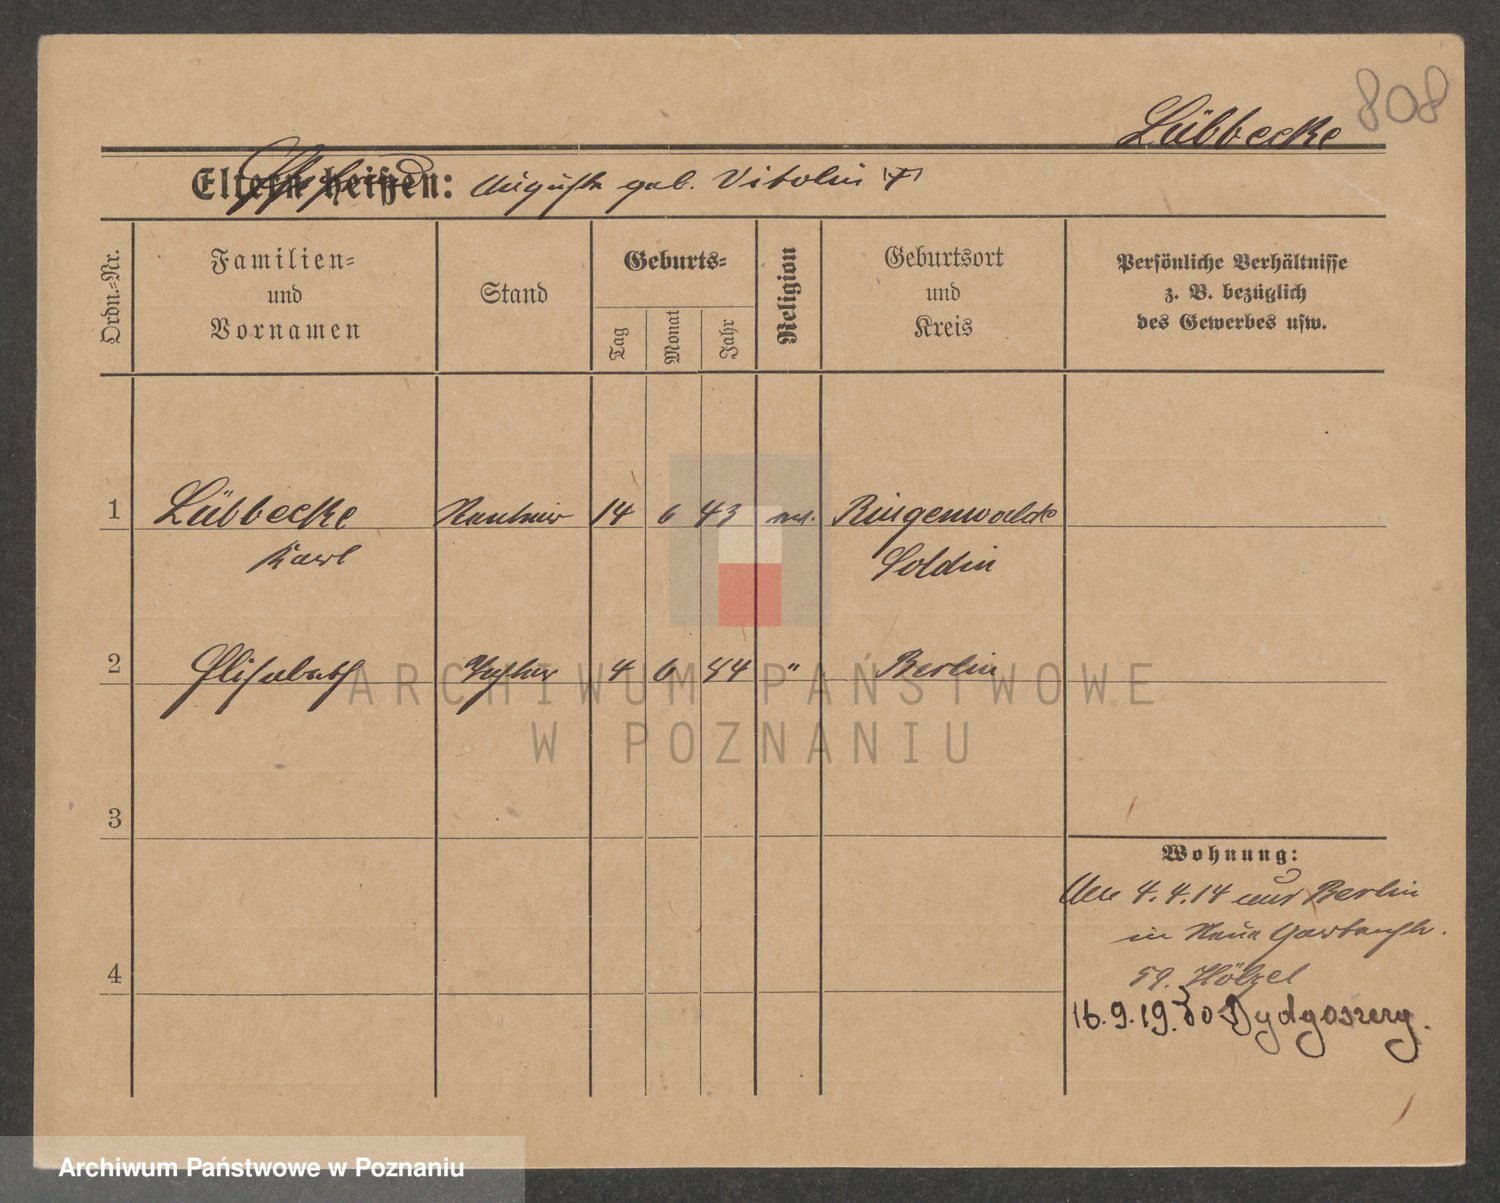 808
Lübbecke
Eltern heißen: Auguste geb. Vitolini
Ordn.-Nr.
Familien-
und
Vornamen
Stand
Geburts-
Tag
Monat
Jahr
Religion
Geburtsort
und
Kreis
Persönliche Verhältnisse
z. B. bezüglich
des Gewerbes usw.
1 Lübbecke Rentier 14 6 43 ev. Ringenwalde
Karl Soldin
2 Elisabeth Tochter 4 6 84 " Berlin
ARCHIWUM PAŃSTWOWE
W POZNANIU
3
Wohnung:
4.4.14 aus Berlin
in Neue Gartenstr.
4
59. Hölzel
16.9.19 do Bydgoszczy.
Archiwum Państwowe w Poznaniu